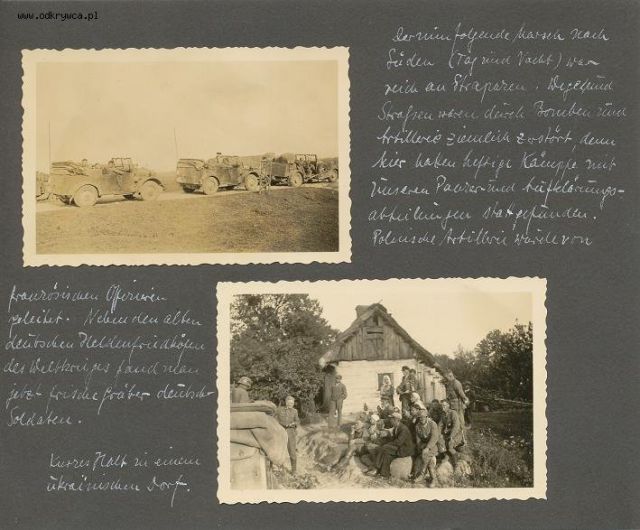 www.odkrywca.pl
Der nun folgende Marsch nach
Süden (Tag und Nacht) war
reich an Strapazen. Wege und
Strassen waren durch Bomben und
Artillerie ziemlich zerstört, denn
hier haben heftige Kämpfe mit
unseren Panzer und Aufklärungs-
abteilungen stattgefunden.
Polnische Artillerie wurde von
französischen Offizieren
geleitet. Neben den alten
deutschen Heldenfriedhöfen
des Weltkrieges fand man
jetzt frische Gräber deutscher
Soldaten.
Kurzes Halt in einem
ukrainischen Dorf.